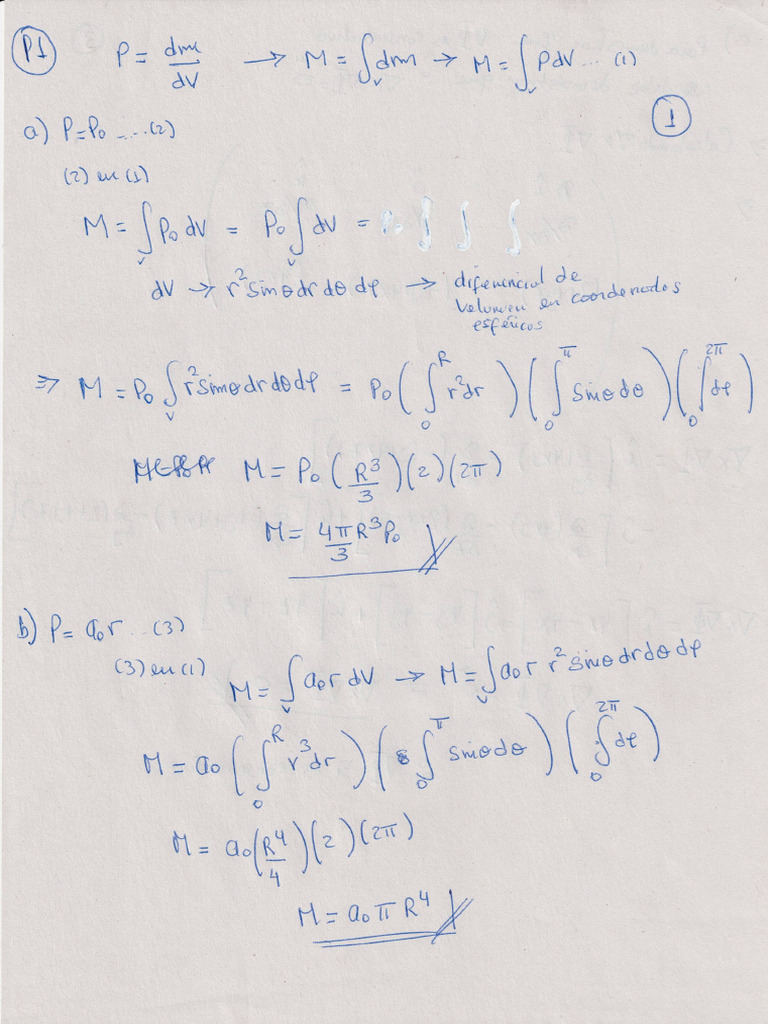 P1 ρ = dm/dV → M = ∫_v dm → M = ∫_v ρdV ... (1)
1
a) ρ=ρ₀ ....(2)
(2) en (1)
M = ∫_v ρ₀ dV = ρ₀ ∫_v dV =
dV → r² sinθ dr dθ dφ → diferencial de
volumen en coordenadas
esféricas
⇒ M = ρ₀ ∫_v r² sinθ dr dθ dφ = ρ₀ ( ∫₀^R r² dr ) ( ∫₀^π sinθ dθ ) ( ∫₀^2π dφ )
M = ρ₀ ( R³/3 ) (2) (2π)
M = 4π/3 R³ρ₀
b) ρ = a₀r ... (3)
(3) en (1) M = ∫_v a₀ r dV → M = ∫_v a₀ r r² sinθ dr dθ dφ
M = a₀ ( ∫₀^R r³ dr ) ( ∫₀^π sinθ dθ ) ( ∫₀^2π dφ )
M = a₀ ( R⁴/4 ) (2) (2π)
M = a₀ π R⁴